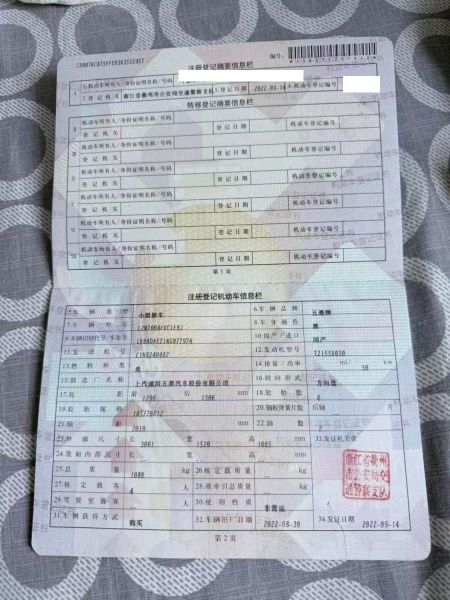 编号:
注册登记摘要信息栏
1.机动车所有人/身份证明名称/号码
2.登记机关 浙江省衢州市公安局交通警察支队 3.登记日期 2022-09-14 4.机动车登记编号
转移登记摘要信息栏
机动车所有人/身份证明名称/号码
登记机关 登记日期 机动车登记编号
机动车所有人/身份证明名称/号码
登记机关 登记日期 机动车登记编号
机动车所有人/身份证明名称/号码
登记机关 登记日期 机动车登记编号
机动车所有人/身份证明名称/号码
登记机关 登记日期 机动车登记编号
机动车所有人/身份证明名称/号码
登记机关 登记日期 机动车登记编号
机动车所有人/身份证明名称/号码
登记机关 登记日期 机动车登记编号
第1页
注册登记机动车信息栏
5.车辆类型 小型轿车 6.车辆品牌 五菱牌
7.车辆型号 8.车身颜色 黑
9.车辆识别代号/车架号 10.国产/进口 国产
11.发动机号 12.发动机型号 TZ155X030
13.燃料种类 电 14.排量/功率 ml/ 30 kw
15.制造厂名称 上汽通用五菱汽车股份有限公司 16.转向形式 方向盘
17.轮距 前 1290 后 1306 mm 18.轮胎数 4
19.轮胎规格 145/70R12 20.钢板弹簧片数 后轴 片
21.轴距 2010 mm 22.轴数 2
23.外廓尺寸 长 3061 宽 1520 高 1665 mm 33.发证机关章
24.货厢内部尺寸 长 宽 高 mm
25.总质量 1080 kg 26.核定载质量 kg
27.核定载客 4 人 28.准牵引总质量 kg
29.驾驶室载客 人 30.使用性质 非营运
31.车辆获得方式 购买 32.车辆出厂日期 2022-08-30 34.发证日期 2022-09-14
浙江省衢州
市公安局交
通警察支队
第2页